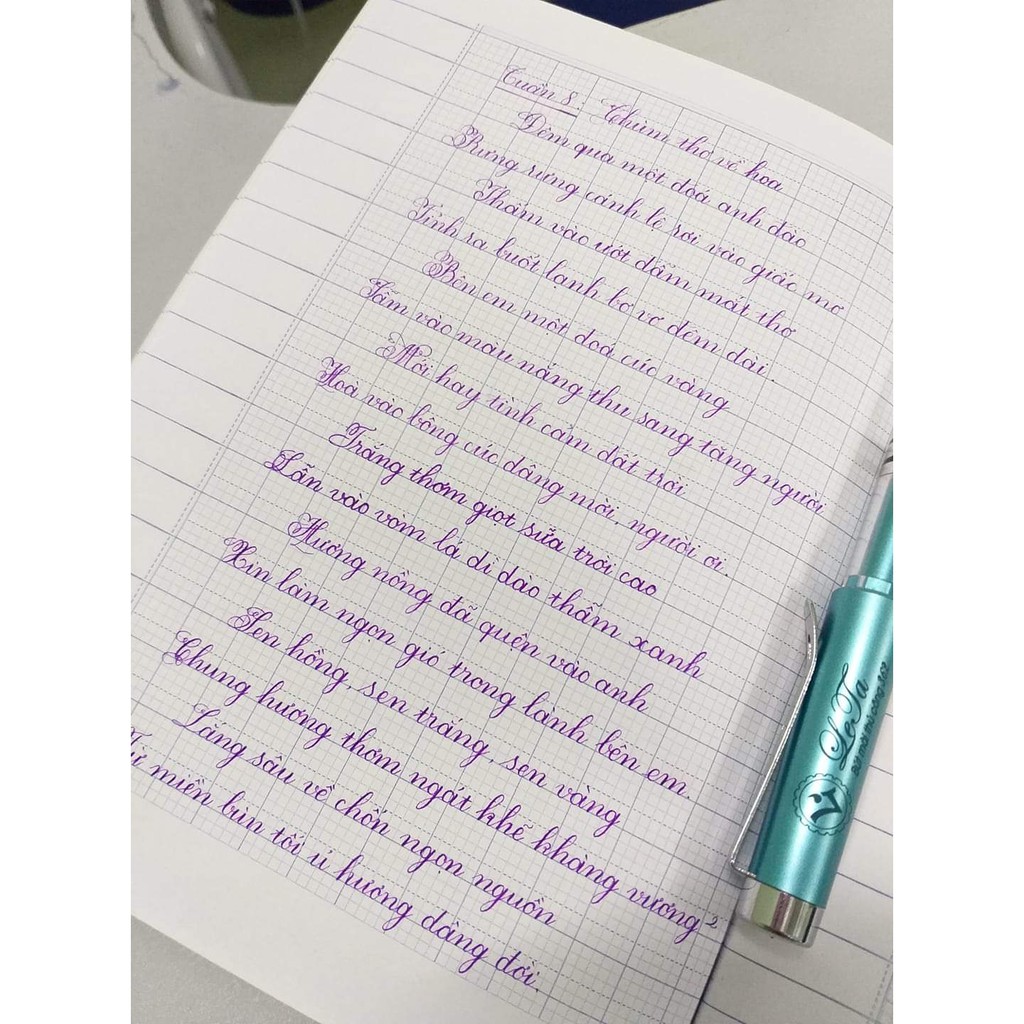 Tuần 8: Chùm thơ về hoa
Đêm qua một đoá anh đào
Rưng rưng cánh lệ rơi vào giấc mơ
Thấm vào ướt đẫm mắt thơ
Tỉnh ra buốt lạnh bơ vơ đêm dài.
Bên em một đoá cúc vàng
Tắm vào màu nắng thu sang tặng người
Mới hay tình cảm đất trời
Hoà vào bông cúc dâng mời, người ơi.
Trắng thơm giọt sữa trời cao
Lẫn vào vòm lá dì dào thẫm xanh
Hương nồng đã quện vào anh
Xin làm ngọn gió trong lành bên em.
Sen hồng, sen trắng, sen vàng
Chung hương thơm ngát khẽ khàng vương
Lắng sâu về chốn ngọn nguồn
Từ miền bùn tối ủ hương dâng đời.
LeTa